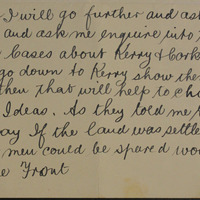 I will go further and ask
and ask me enquire into
Cases about Kerry & Cork
go down to Kerry show the
then that will help to cha
Ideas. As they told me t
ay If the land was settle
men could be spared wou
e Front